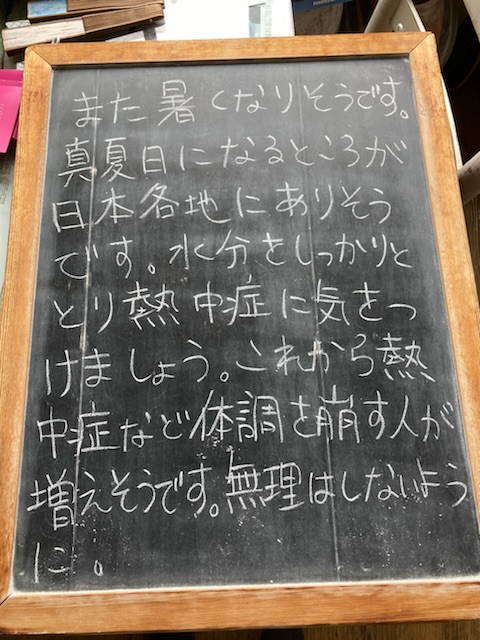 また暑くなりそうです。
真夏日になるところが
日本各地にありそう
です。水分をしっかりと
とり熱中症に気をつ
けましょう。これから熱
中症など体調を崩す人が
増えそうです。無理はしないよう
に。